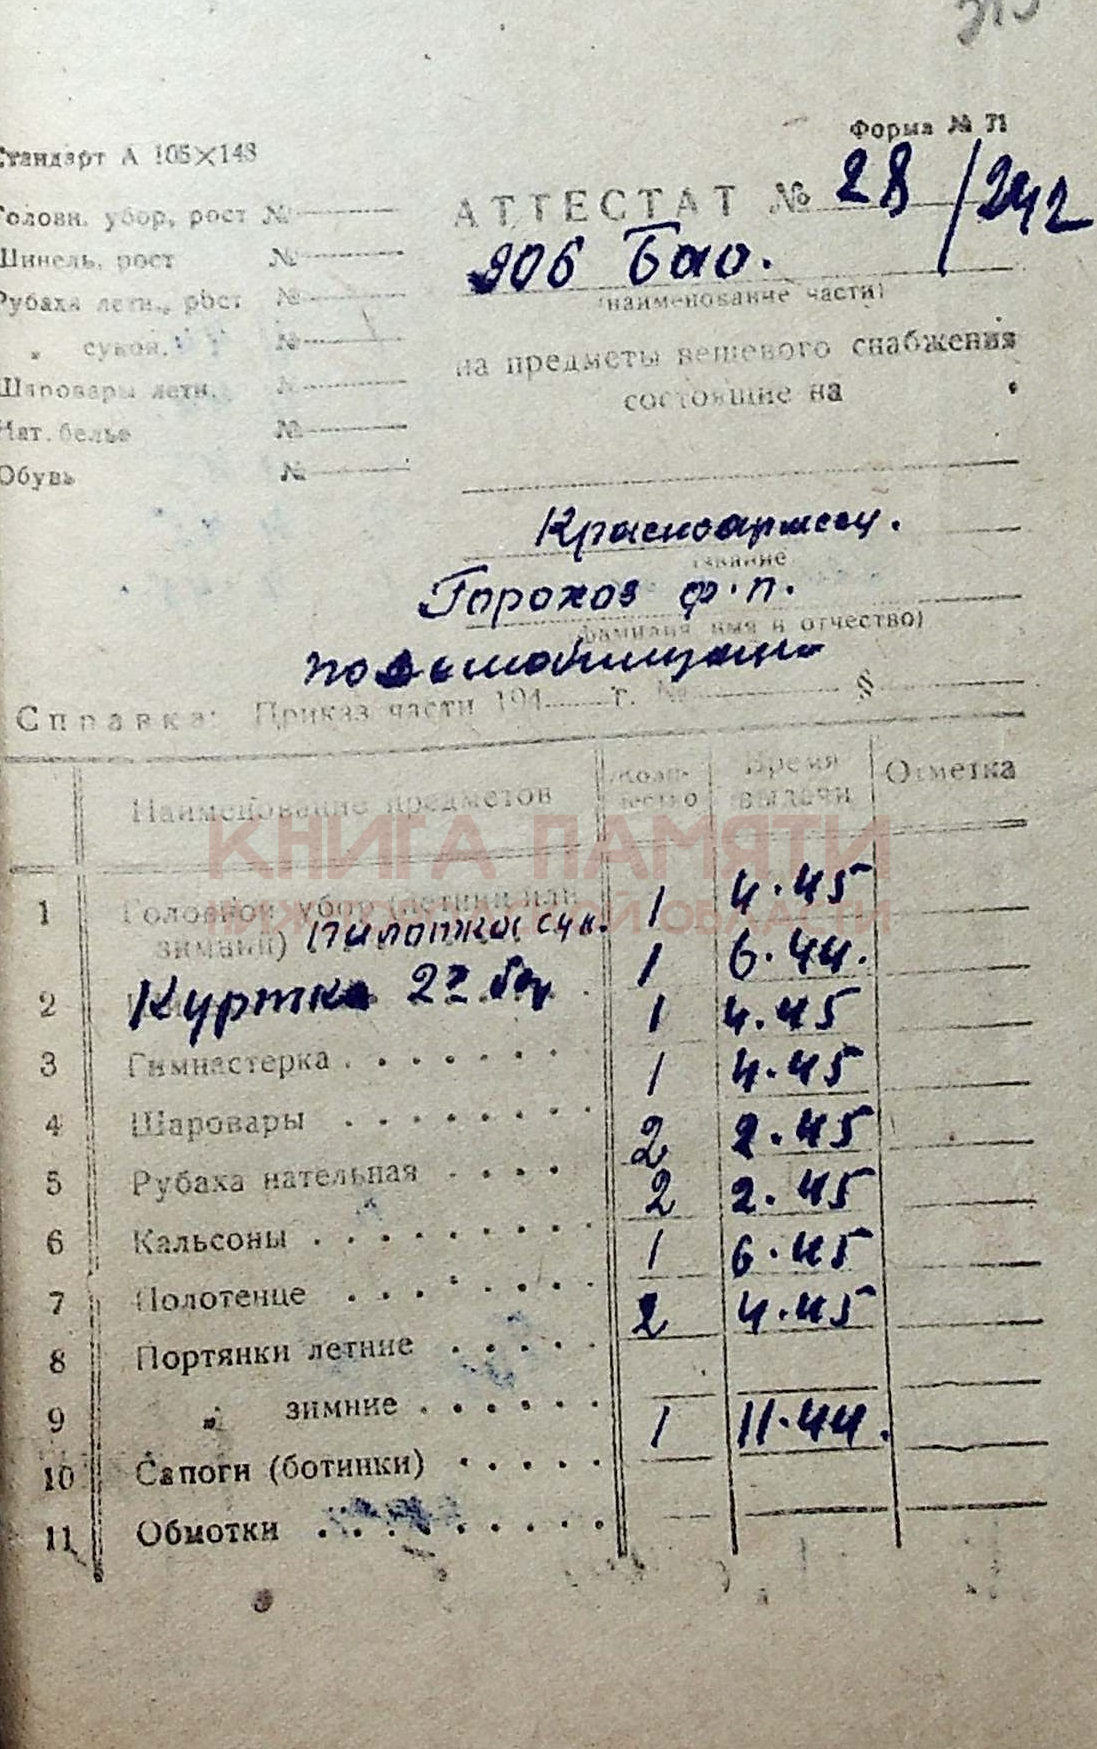 315
Форма № 71
Стандарт А 105×148
Головн. убор, рост №
Шинель, рост №
Рубаха летн., рост №
„ сукон. №
Шаровары летн. №
Нат. белье №
Обувь №
АТТЕСТАТ № 28/242
906 Бао.
(наименование части)
на предметы вещевого снабжения
состоящие на
Красноармеец.
звание
Горохов Ф.П.
(фамилия имя и отчество)
по демобилизации
Справка: Приказ части 194 г. № §
Наименование предметов Коли-чество Время выдачи Отметка
КНИГА ПАМЯТИ
НИЖЕГОРОДСКОЙ ОБЛАСТИ
1 Головной убор (летний или
зимний) пилотка сук. 1 4.45
2 Куртка 2й 1 6.44.
3 Гимнастерка 1 4.45
4 Шаровары 1 4.45
5 Рубаха нательная 2 2.45
6 Кальсоны 2 2.45
7 Полотенце 1 6.45
8 Портянки летние 2 4.45
9 „ зимние
10 Сапоги (ботинки) 1 11.44.
11 Обмотки